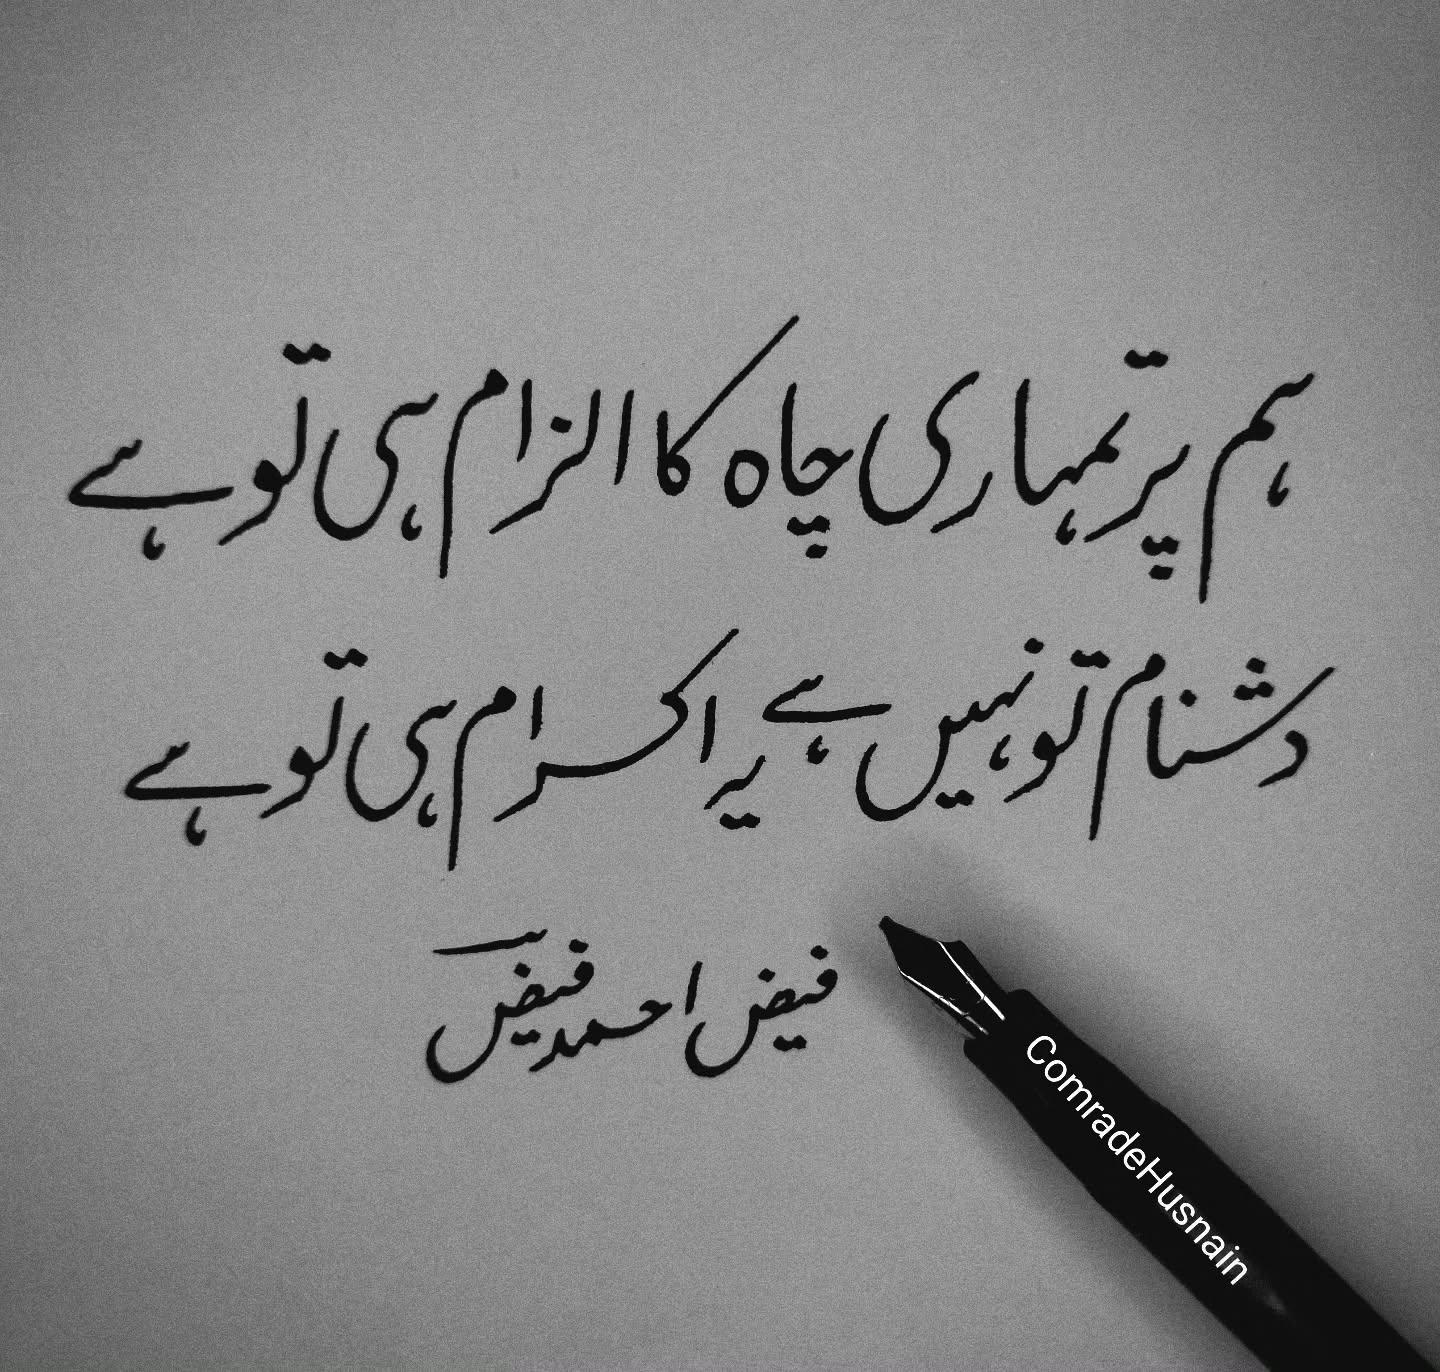 ہم پر تمہاری چاہ کا الزام ہی تو ہے
دشنام تو نہیں ہے یہ اکرام ہی تو ہے
فیض احمد فیض
ComradeHusnain